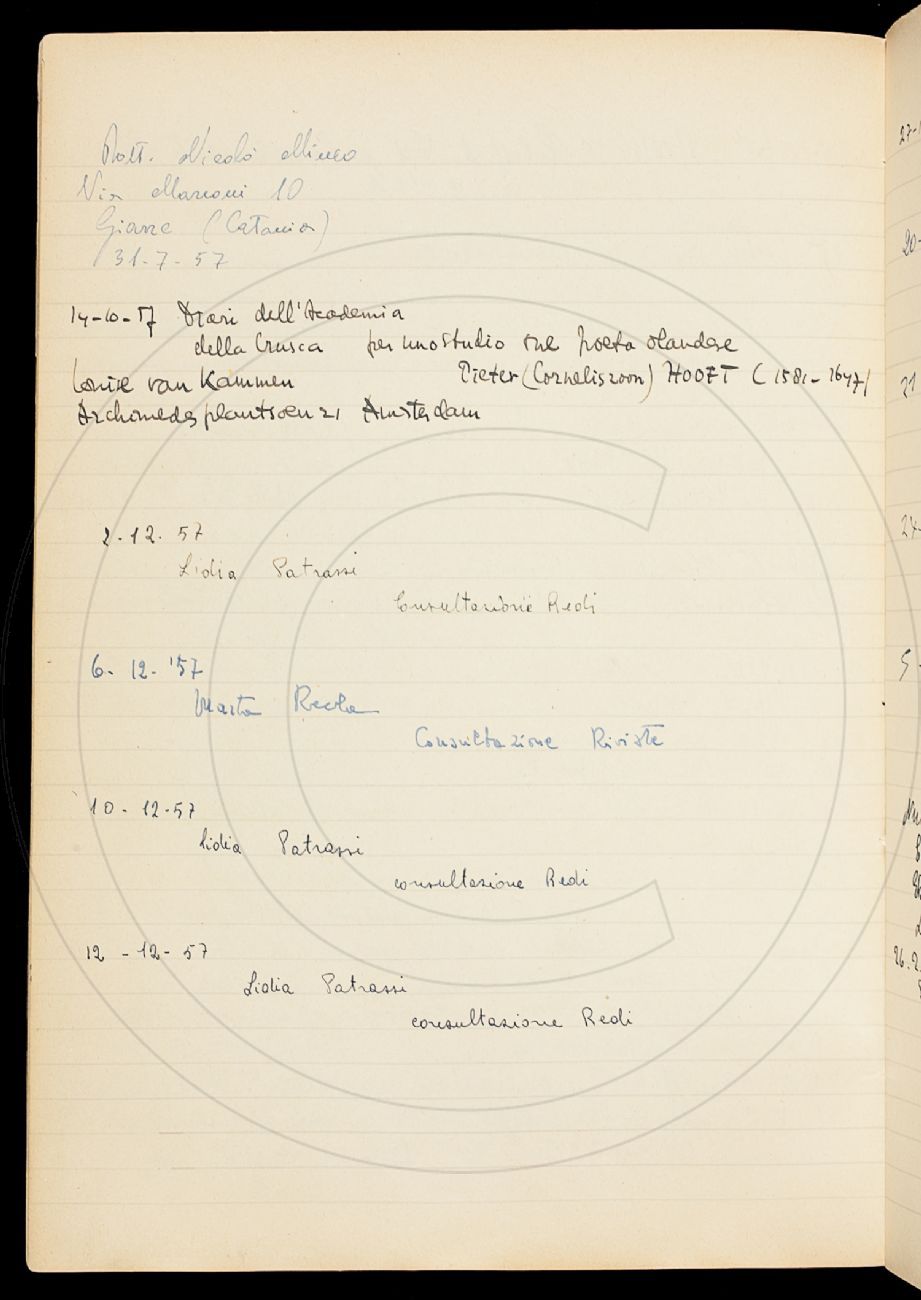 Dott. Nicolò Mineo
Via Marconi 10
Giarre (Catania)
31-7-57
14-10-57 Diari dell'Academia
della Crusca per uno studio sul poeta olandese
Louise van Kammen Pieter (Corneliszoon) HOOFT (1581-1647)
Archimedesplantsoen 21 Amsterdam
2.12.57
Lidia Patrassi
Consultazione Redi
6-12-'57
Marta
Consultazione Riviste
10-12-57
Lidia Patrassi
consultazione Redi
12-12-57
Lidia Patrassi
consultazione Redi
27-
20-
21
27-
5-
26.2